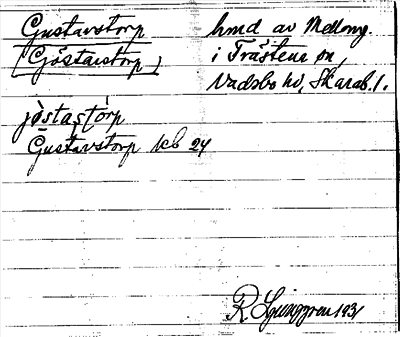 Gustavstorp hmd av Mellomg.
[Göstavstorp] i Trästena sn,
Vadsbo hd, Skarab. l.
jòstastórp
Gustavstorp kb 24
R. Ljunggren 1931